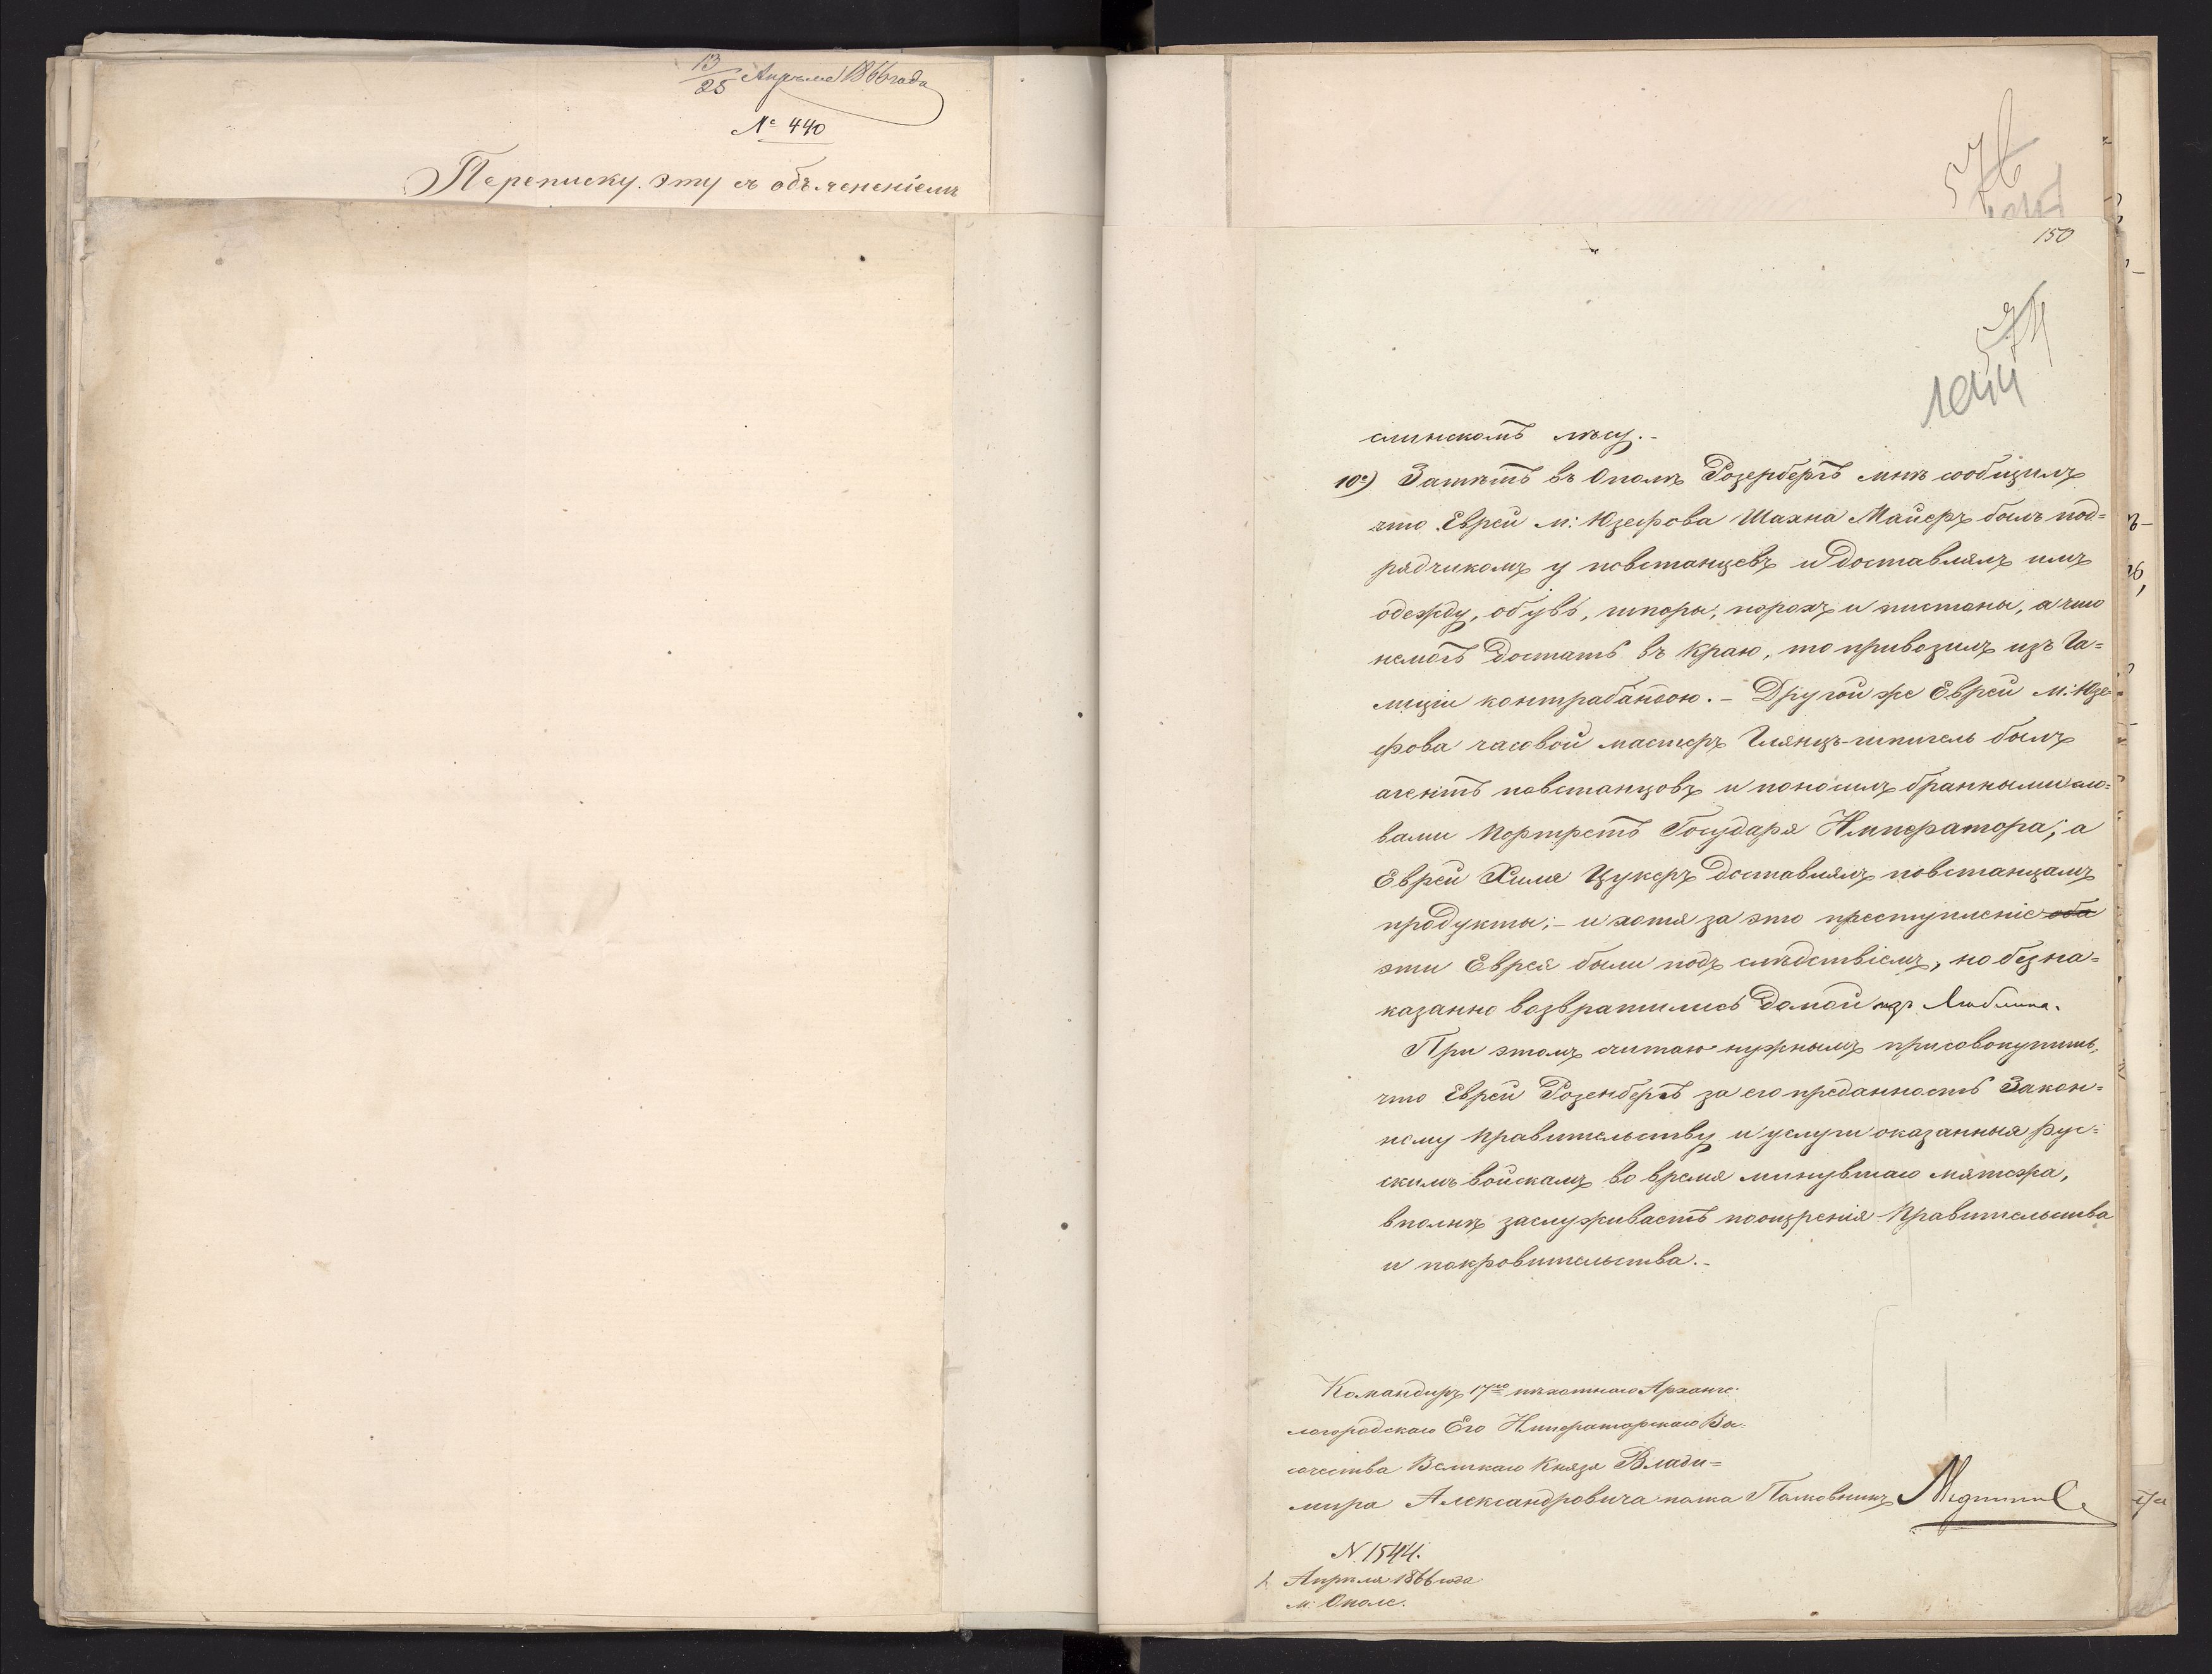 13/25 Апреля 1866 года
№ 440
Переписку эту съ объясненіемъ
150
слинскомъ лѣсу.-
10е) Затѣмъ въ Ополѣ Розенбергъ мнѣ сообщилъ
что Еврей м: Юзефова Шахна Майеръ былъ под=
рядчикомъ у повстанцевъ и доставлялъ имъ
одежду, обувь, шпоры, порохъ и пистоны, а что
немогъ достать въ краю, то привозилъ изъ Га=
лиціи контрабандою.- Другой же Еврей м: Юзе
фова часовой мастеръ Глянцъ-шпигель былъ
агентъ повстанцовъ и поносилъ бранными сло=
вами портретъ Государя Императора; а
Еврей Хиля Цукеръ доставлялъ повстанцамъ
продукты;- и хотя за это преступленіе оба
эти Еврея были подъ слѣдствіемъ, но безна=
казанно возвратились домой изъ Люблина.
При этомъ считаю нужнымъ присовокупить,
что Еврей Розенбергъ за его преданность Закон=
ному правительству и услуги оказанныя Рус=
скимъ войскамъ во время минувшаго мятежа,
вполнѣ заслуживаетъ поощренія Правительства
и покровительства.-
Командиръ 17го пѣхотнаго Арханге:
логородскаго Его Императорскаго Вы:
сочества Великаго Князя Влади=
мира Александровича полка Полковникъ
N. 1544.
Апрѣля 1866 года
м: Ополе.